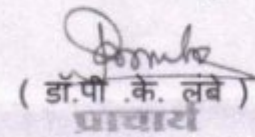 ( डॉ.पी .के. लंबे )
प्राचार्य